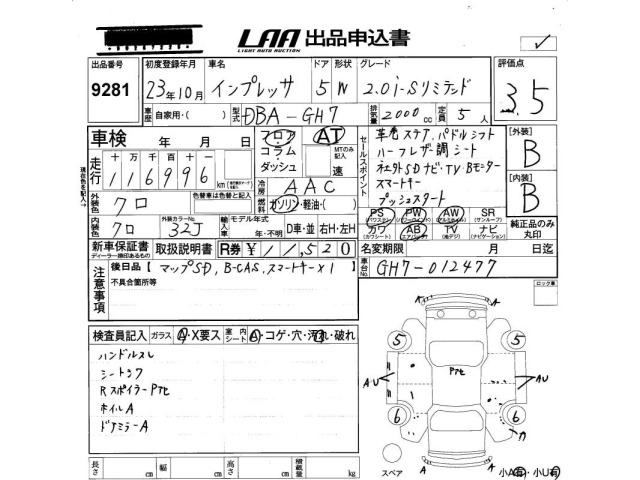 LAA 出品申込書
LIGHT AUTO AUCTION
出品番号 9281
初度登録年月 23年10月
車名 インプレッサ
ドア 5 形状 W
グレード 2.0i-Sリミテッド
評価点 3.5
車歴 自家用・( )
型式 DBA-GH7
排気量 2000 cc 定員 5 人
車検 年 月 日
フロア コラム ダッシュ
AT
MTのみ記入 速
セールスポイント
革巻ステア、パドルシフト
ハーフレザー調シート
社外SDナビ・TV・Bモニター
スマートキー
プッシュスタート
[外装] B
[内装] B
走行 十 万 千 百 十 一
116996 km
現在色を記入→
冷房 AAC
外装色 クロ
色替車は色替と記入
燃料 ガソリン・軽油・( )
内装色 クロ
外装カラーNo. 32J
輸入車 モデル年式 年・不明 D車・並 右H・左H
PS (パワステ) PW (パワーウインド) AW (アルミホイル) SR (サンルーフ)
カワ (カワシート) AB (エアバッグ) TV (地デジ) ナビ (ナビゲーション)
純正品のみ丸印
新車保証書 取扱説明書 R券 ¥11,520
ディーラー捺印あるもの
名変期限 月 日迄
車台No. GH7-012477
注意事項
後日品【 マップSD, B-CAS, スマートキー×1 】
不具合箇所等
ロック車
検査員記入 ガラス A・X要ス 室内シート A・コゲ・穴・汚れ・破れ
ハンドルスレ
シートシワ
RスポイラーPアセ
ホイルA
ドアミラーA
A A
5 5
A・U Pアセ AU
6 6
A A
スペア
小A有・小U有
長さ cm 幅 cm 高さ cm 積載量 kg